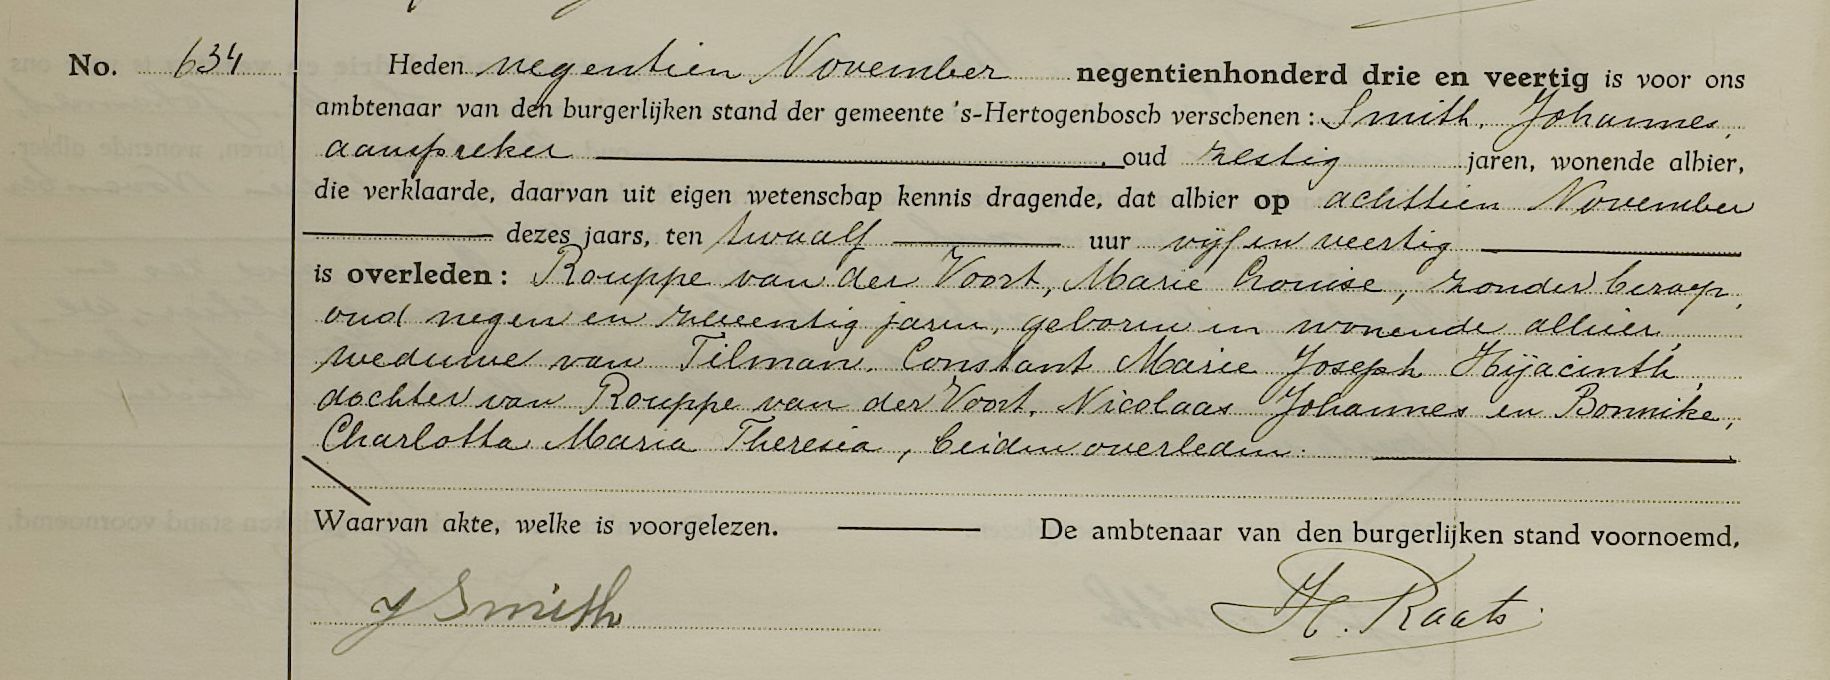 No. 634
Heden negentien November negentienhonderd drie en veertig is voor ons
ambtenaar van den burgerlijken stand der gemeente 's-Hertogenbosch verschenen: Smith, Johannes,
aanspreker, oud zestig jaren, wonende alhier,
die verklaarde, daarvan uit eigen wetenschap kennis dragende, dat alhier op achttien November
dezes jaars, ten twaalf uur vijf en veertig
is overleden: Rouppe van der Voort, Marie Louise, zonder beroep,
oud negen en zeventig jaren, geboren en wonende alhier,
weduwe van Tilman, Constant Marie Joseph Hijacinth,
dochter van Rouppe van der Voort, Nicolaas Johannes en Bonnike,
Charlotta Maria Theresia, beiden overleden.
Waarvan akte, welke is voorgelezen. De ambtenaar van den burgerlijken stand voornoemd,
J Smith H. Raats